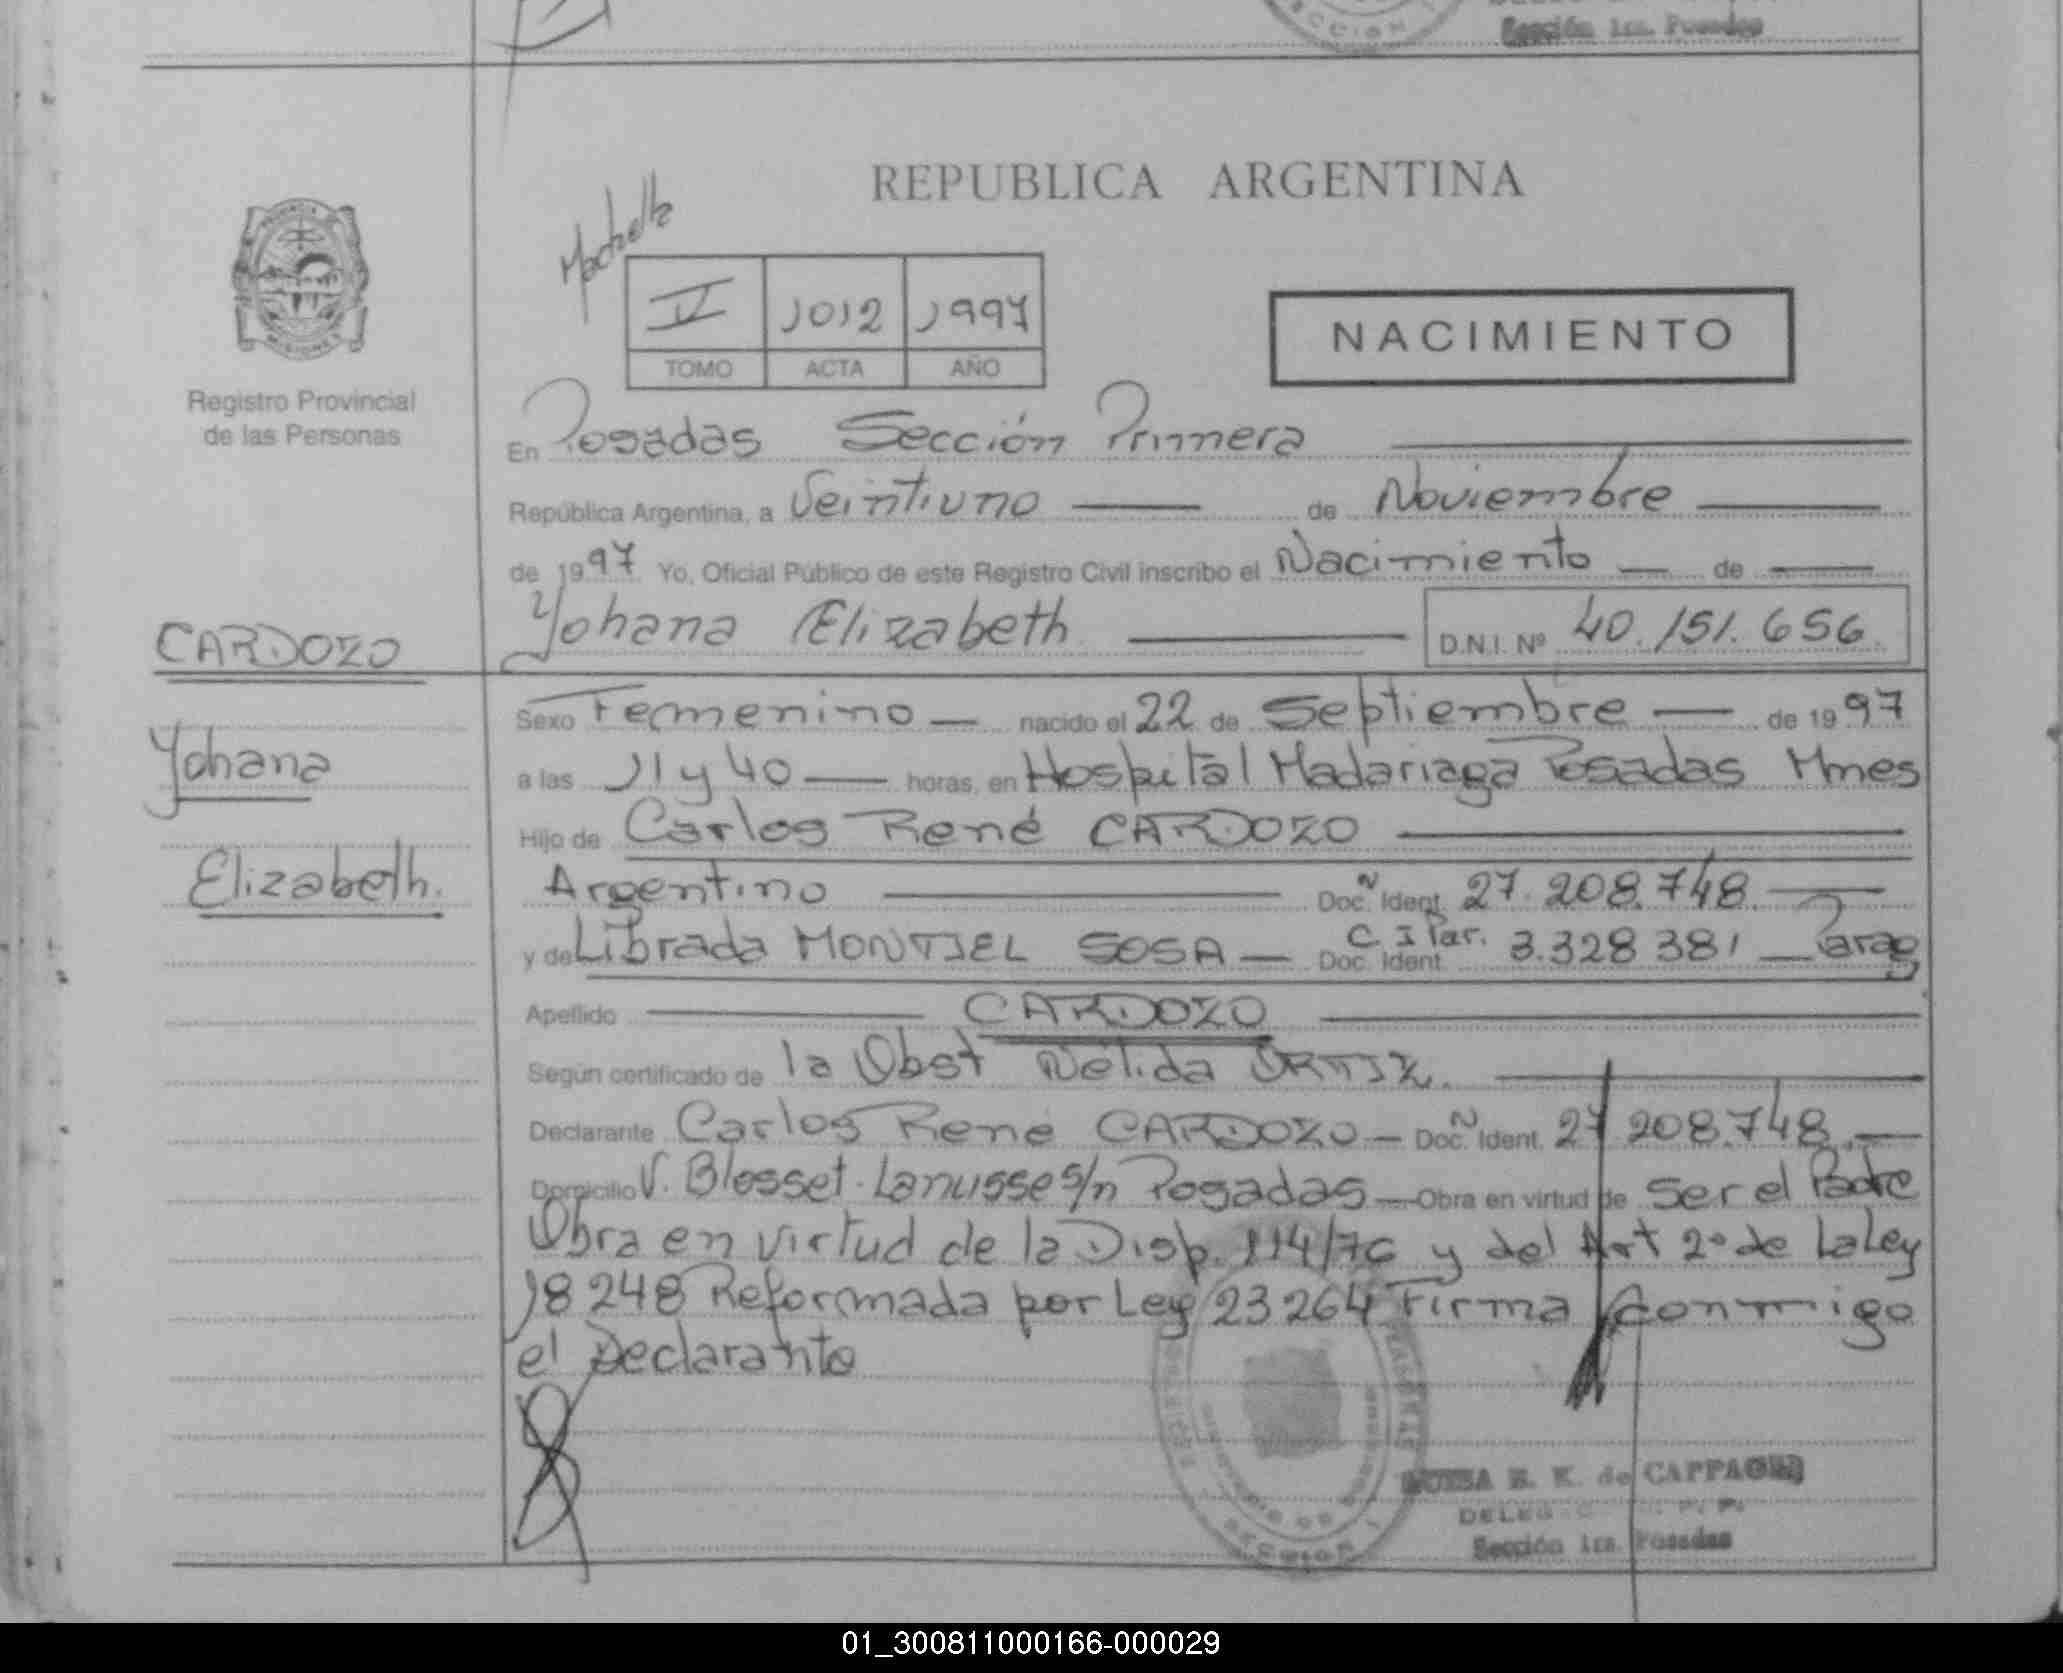 Sección 1ra. Posadas
REPUBLICA ARGENTINA
V 1012 1997
TOMO ACTA AÑO
NACIMIENTO
Registro Provincial
de las Personas
En Posadas Sección Primera
República Argentina, a Veintiuno de Noviembre
de 1997 Yo, Oficial Público de este Registro Civil inscribo el Nacimiento de
Yohana Elizabeth D.N.I. Nº 40.151.656.
CARDOZO
Yohana
Elizabeth.
Sexo Femenino nacido el 22 de Septiembre de 1997
a las 11 y 40 horas, en Hospital Madariaga Posadas Mnes
Hijo de Carlos René CARDOZO
Argentino Doc. Ñ Ident. 27.208.748
y de Librada MONTIEL SOSA Doc. Ident. C I Par. 3.328 381 Parag
Apellido CARDOZO
Según certificado de la Obst Nélida ORTIZ.
Declarante Carlos René CARDOZO Doc. Ñ Ident. 27 208.748.
Domicilio V. Blosset. Lanusse s/n Posadas Obra en virtud de Ser el Padre
Obra en virtud de la Disp. 114/76 y del Art 2º de la Ley
18 248 Reformada por Ley 23 264 Firma Conmigo
el Declarante
E. K. de CAPPAGLI
Sección 1ra. Posadas
01_300811000166-000029